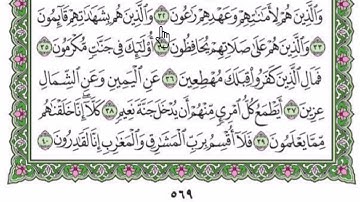 وَالَّذِينَ هُمْ لِأَمَانَاتِهِمْ وَعَهْدِهِمْ رَاعُونَ ٣٢ وَالَّذِينَ هُم بِشَهَادَاتِهِمْ قَائِمُونَ
٣٣ وَالَّذِينَ هُمْ عَلَىٰ صَلَاتِهِمْ يُحَافِظُونَ أُولَٰئِكَ فِي جَنَّاتٍ مُّكْرَمُونَ ٣٥
فَمَالِ الَّذِينَ كَفَرُوا قِبَلَكَ مُهْطِعِينَ ٣٦ عَنِ الْيَمِينِ وَعَنِ الشِّمَالِ
عِزِينَ ٣٧ أَيَطْمَعُ كُلُّ امْرِئٍ مِّنْهُمْ أَن يُدْخَلَ جَنَّةَ نَعِيمٍ ٣٨ كَلَّا إِنَّا خَلَقْنَاهُم
مِّمَّا يَعْلَمُونَ ٣٩ فَلَا أُقْسِمُ بِرَبِّ الْمَشَارِقِ وَالْمَغَارِبِ إِنَّا لَقَادِرُونَ ٤٠
٥٦٩